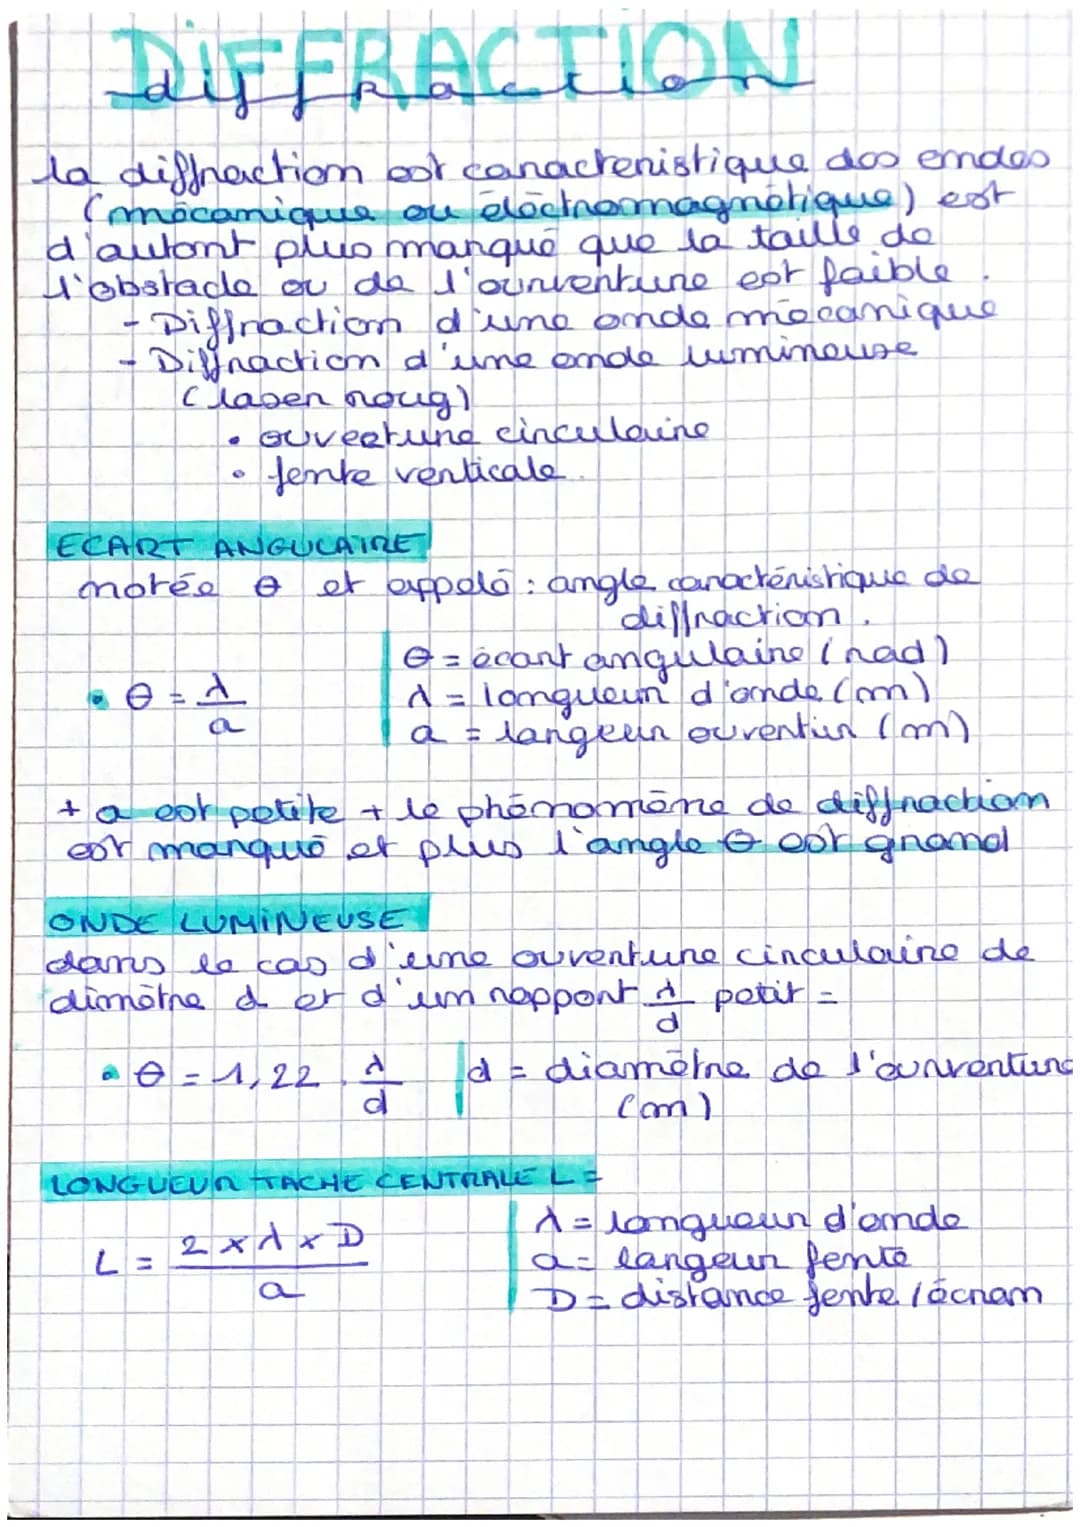 DIFFRACTION
diffraction
la diffraction est caractéristique des ondes
(mécanique ou électromagnétique) est
d'autant plus marqué que la taille de
l'obstacle ou de l'ouverture est faible.
- Diffraction d'une onde mécanique
- Diffraction d'une onde lumineuse
(laser roug)
• ouverture circulaire
• fente verticale.
ECART ANGULAIRE
notée θ et appelé : angle caractéristique de
diffraction.
θ = écart angulaire (rad)
• θ = λ/a
λ = longueur d'onde (m)
a = largeur ouvertur (m)
+ a est petite + le phénomène de diffraction
est marqué et plus l'angle θ est grand
ONDE LUMINEUSE
dans le cas d'une ouverture circulaire de
dimètre d et d'un rapport λ/d petit =
• θ = 1,22 . λ/d d = diamètre de l'ouverture
(m)
LONGUEUR TACHE CENTRALE L =
λ = longueur d'onde
L = 2 x λ x D / a
a = largeur fente
D = distance fente / écran